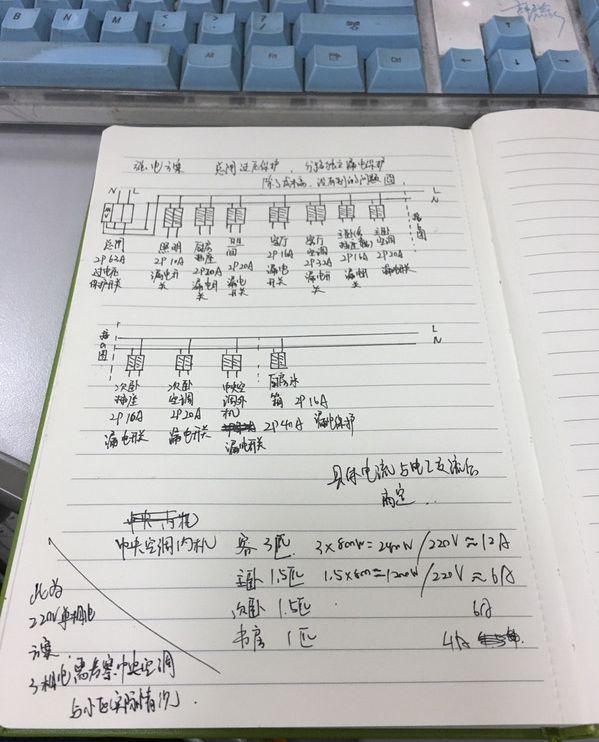 B N M < > ?
Alt Fn Ctrl
强电方案 总闸过压保护, 分路独立漏电保护
除了成本高, 没有别的问题 图,
N L
L
N
总闸 照明 厨房 卫生间 客厅 客厅 主卧 主卧
2P 63A 2P 10A 插座 2P 16A 空调 插座 空调
过电压 漏电开关 2P 20A 2P 20A 漏电开关 2P 32A 2P 16A 2P 20A
保护开关 漏电开关 漏电开关 漏电开关 漏电开关 漏电开关
L
N
次卧 次卧 中央空 厨房冰
插座 空调 调外 箱 2P 16A
2P 16A 2P 20A 机 2P 40A 漏电保护
漏电开关 漏电开关 漏电开关
具体电流与电工交流后
商定...
中央空调内机 客 3匹 3×800W=2400W/220V≈12A
主卧 1.5匹 1.5×800=1200W/220V≈6A
次卧 1.5匹 6A
书房 1匹 4A
此为
220V单相电
方案
3相电需考察中央空调
与小区实际情况.